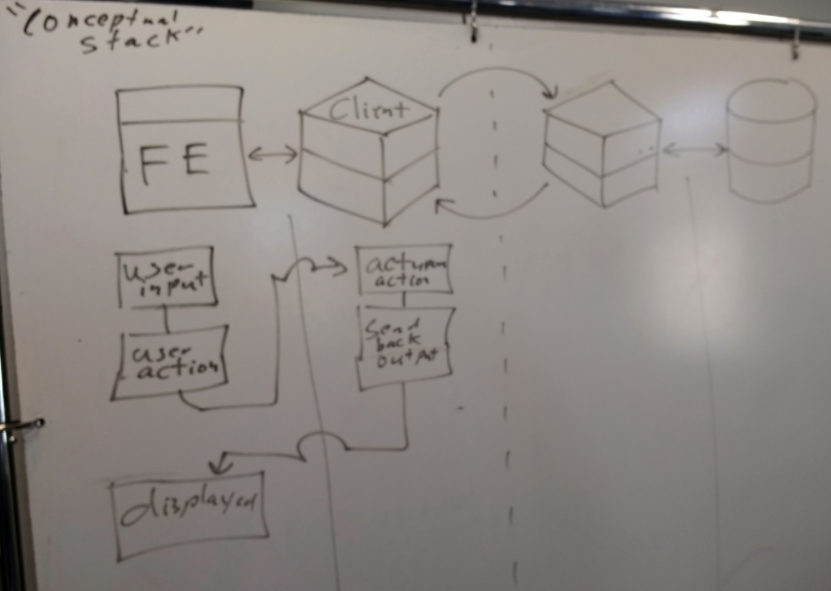 "Conceptual
stack"
FE
Client
user
input
user
action
act upon
action
Send
back
output
displayed